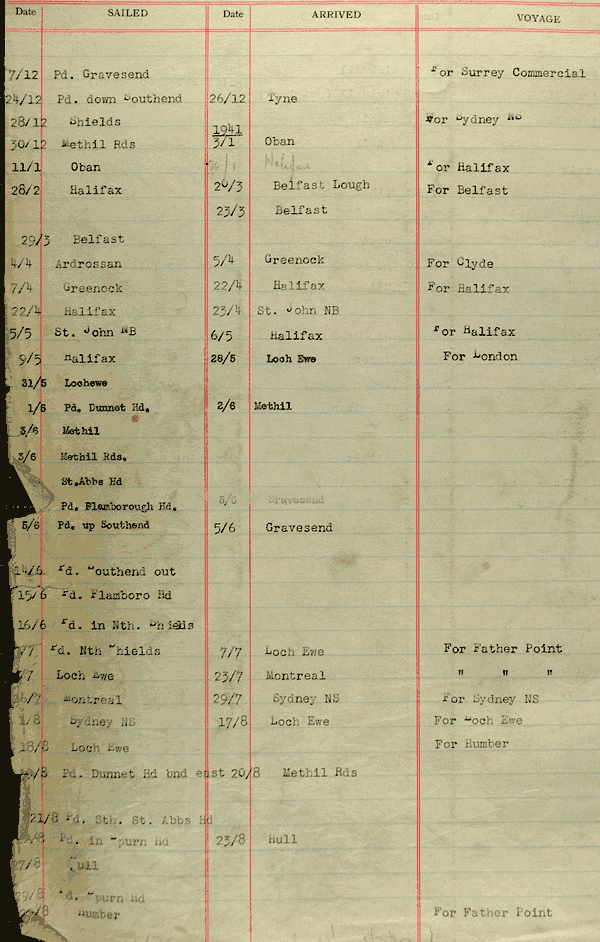 Date SAILED Date ARRIVED VOYAGE
7/12 Pd. Gravesend For Surrey Commercial
24/12 Pd. down Southend 26/12 Tyne
28/12 Shields For Sydney NS
1941
30/12 Methil Rds 3/1 Oban
11/1 Oban Halifax For Halifax
28/2 Halifax 20/3 Belfast Lough For Belfast
23/3 Belfast
29/3 Belfast
4/4 Ardrossan 5/4 Greenock For Clyde
7/4 Greenock 22/4 Halifax For Halifax
22/4 Halifax 23/4 St. John NB
5/5 St. John NB 6/5 Halifax For Halifax
9/5 Halifax 28/5 Loch Ewe For London
31/5 Lochewe
1/6 Pd. Dunnet Hd. 2/6 Methil
3/6 Methil
3/6 Methil Rds.
St.Abbs Hd
Pd. Flamborough Hd. 5/6 Gravesend
5/6 Pd. up Southend 5/6 Gravesend
14/6 Pd. Southend out
15/6 Pd. Flamboro Hd
16/6 Pd. in Nth. Shields
/7 Pd. Nth Shields 7/7 Loch Ewe For Father Point
/7 Loch Ewe 23/7 Montreal " " "
26/7 Montreal 29/7 Sydney NS For Sydney NS
1/8 Sydney NS 17/8 Loch Ewe For Loch Ewe
18/8 Loch Ewe For Humber
/8 Pd. Dunnet Hd bnd east 20/8 Methil Rds
21/8 Pd. Sth. St. Abbs Hd
/8 Pd. in Spurn Hd 23/8 Hull
27/8 Hull
29/8 Pd. Spurn Hd
/8 Humber For Father Point